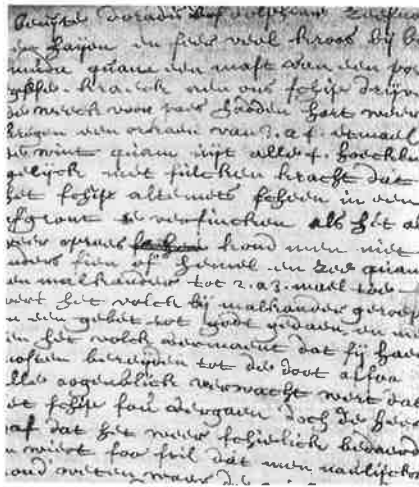 dorados
haijen en veel kroos bij
quam een mast van een
kraeck aen ons schip drijv
weeck voor paes hadden hart weer
kregen een orcaen van 3. a 4. etmael
de wint quam uijt alle 4. hoecke
gelijck met sulcken kracht dat
het schip altemets scheen in een
afgront te versincken als het a
weer oprees kond men niet
anders sien of hemel en zee quam
en malkander tot 2. a 3. mael toe
wert het volck bij malkander geroep
en een gebet tot godt gedaen en
en het volck vermaent dat sij haer
mosten bereijden tot de doot alsoo
alle oogenblick verwacht wert dat
het schip sou vergaen doch de heer
gaf dat het weer schielick bedaerd
en wiert soo stil dat men nauelijcks
kond weten waer de